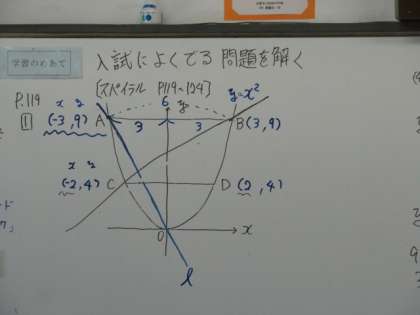 学習のめあて
入試によくでる問題を解く
[スパイラル P119~124]
P.119
1
x y
(-3, 9)
A
6
y
y=x²
B(3, 9)
3
3
x y
(-2, 4)
C
D
(2, 4)
O
x
l